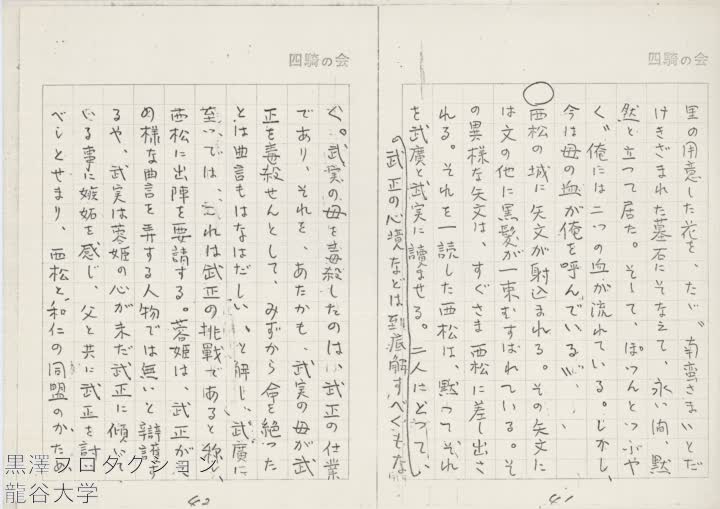 四騎の会
里の用意した花を、たゞ〝南蛮さま〟とだ
けきざまれた墓石にそなえて、永い間、黙
然と立つて居た。そして、ぽつんとつぶや
く〝俺には二つの血が流れている。しかし、
今は母の血が俺を呼んでいる〟
西松の城に矢文が射込まれる。その矢文に
は文の他に黒髪が一束むすばれている。そ
の異様な矢文は、すぐさま西松に差し出さ
れる。それを一読した西松は、黙つてそれ
を武廣と武実に讀ませる。二人にとつてい
の武正の心境などは到底解すべくもな
41
四騎の会
く。武実の母を毒殺したのは、武正の仕業
であり、それを、あたかも、武実の母が武
正を毒殺せんとして、みずから命を絶つた
とは曲言もはなはだしい、と解し、武廣に
至いては、これは武正の挑戦であると称し、
西松に出陣を要請する。蓉姫は、武正が
の様な曲言を弄する人物では無いと辯護す
るや、武実は蓉姫の心が未だ武正に傾いて
いる事に嫉妬を感じ、父と共に武正を討
べしとせまり、西松と和仁の同盟のかため
42
黒澤プロダクション
龍谷大学